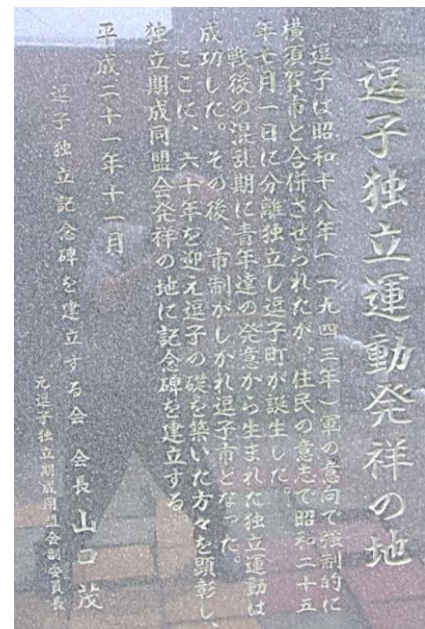 逗子独立運動発祥の地
逗子は昭和十八年(一九四三年)軍の意向で強制的に
横須賀市と合併させられたが、住民の意志で昭和二十五
年七月一日に分離独立し逗子町が誕生した。
戦後の混乱期に青年達の発意から生まれた独立運動は
成功した。その後、市制がしかれ逗子市となった。
ここに、六十年を迎え逗子の礎を築いた方々を顕彰し、
独立期成同盟会発祥の地に記念碑を建立する。
平成二十一年十一月
逗子独立記念碑を建立する会 会長 山口 茂
元逗子独立期成同盟会副委員長